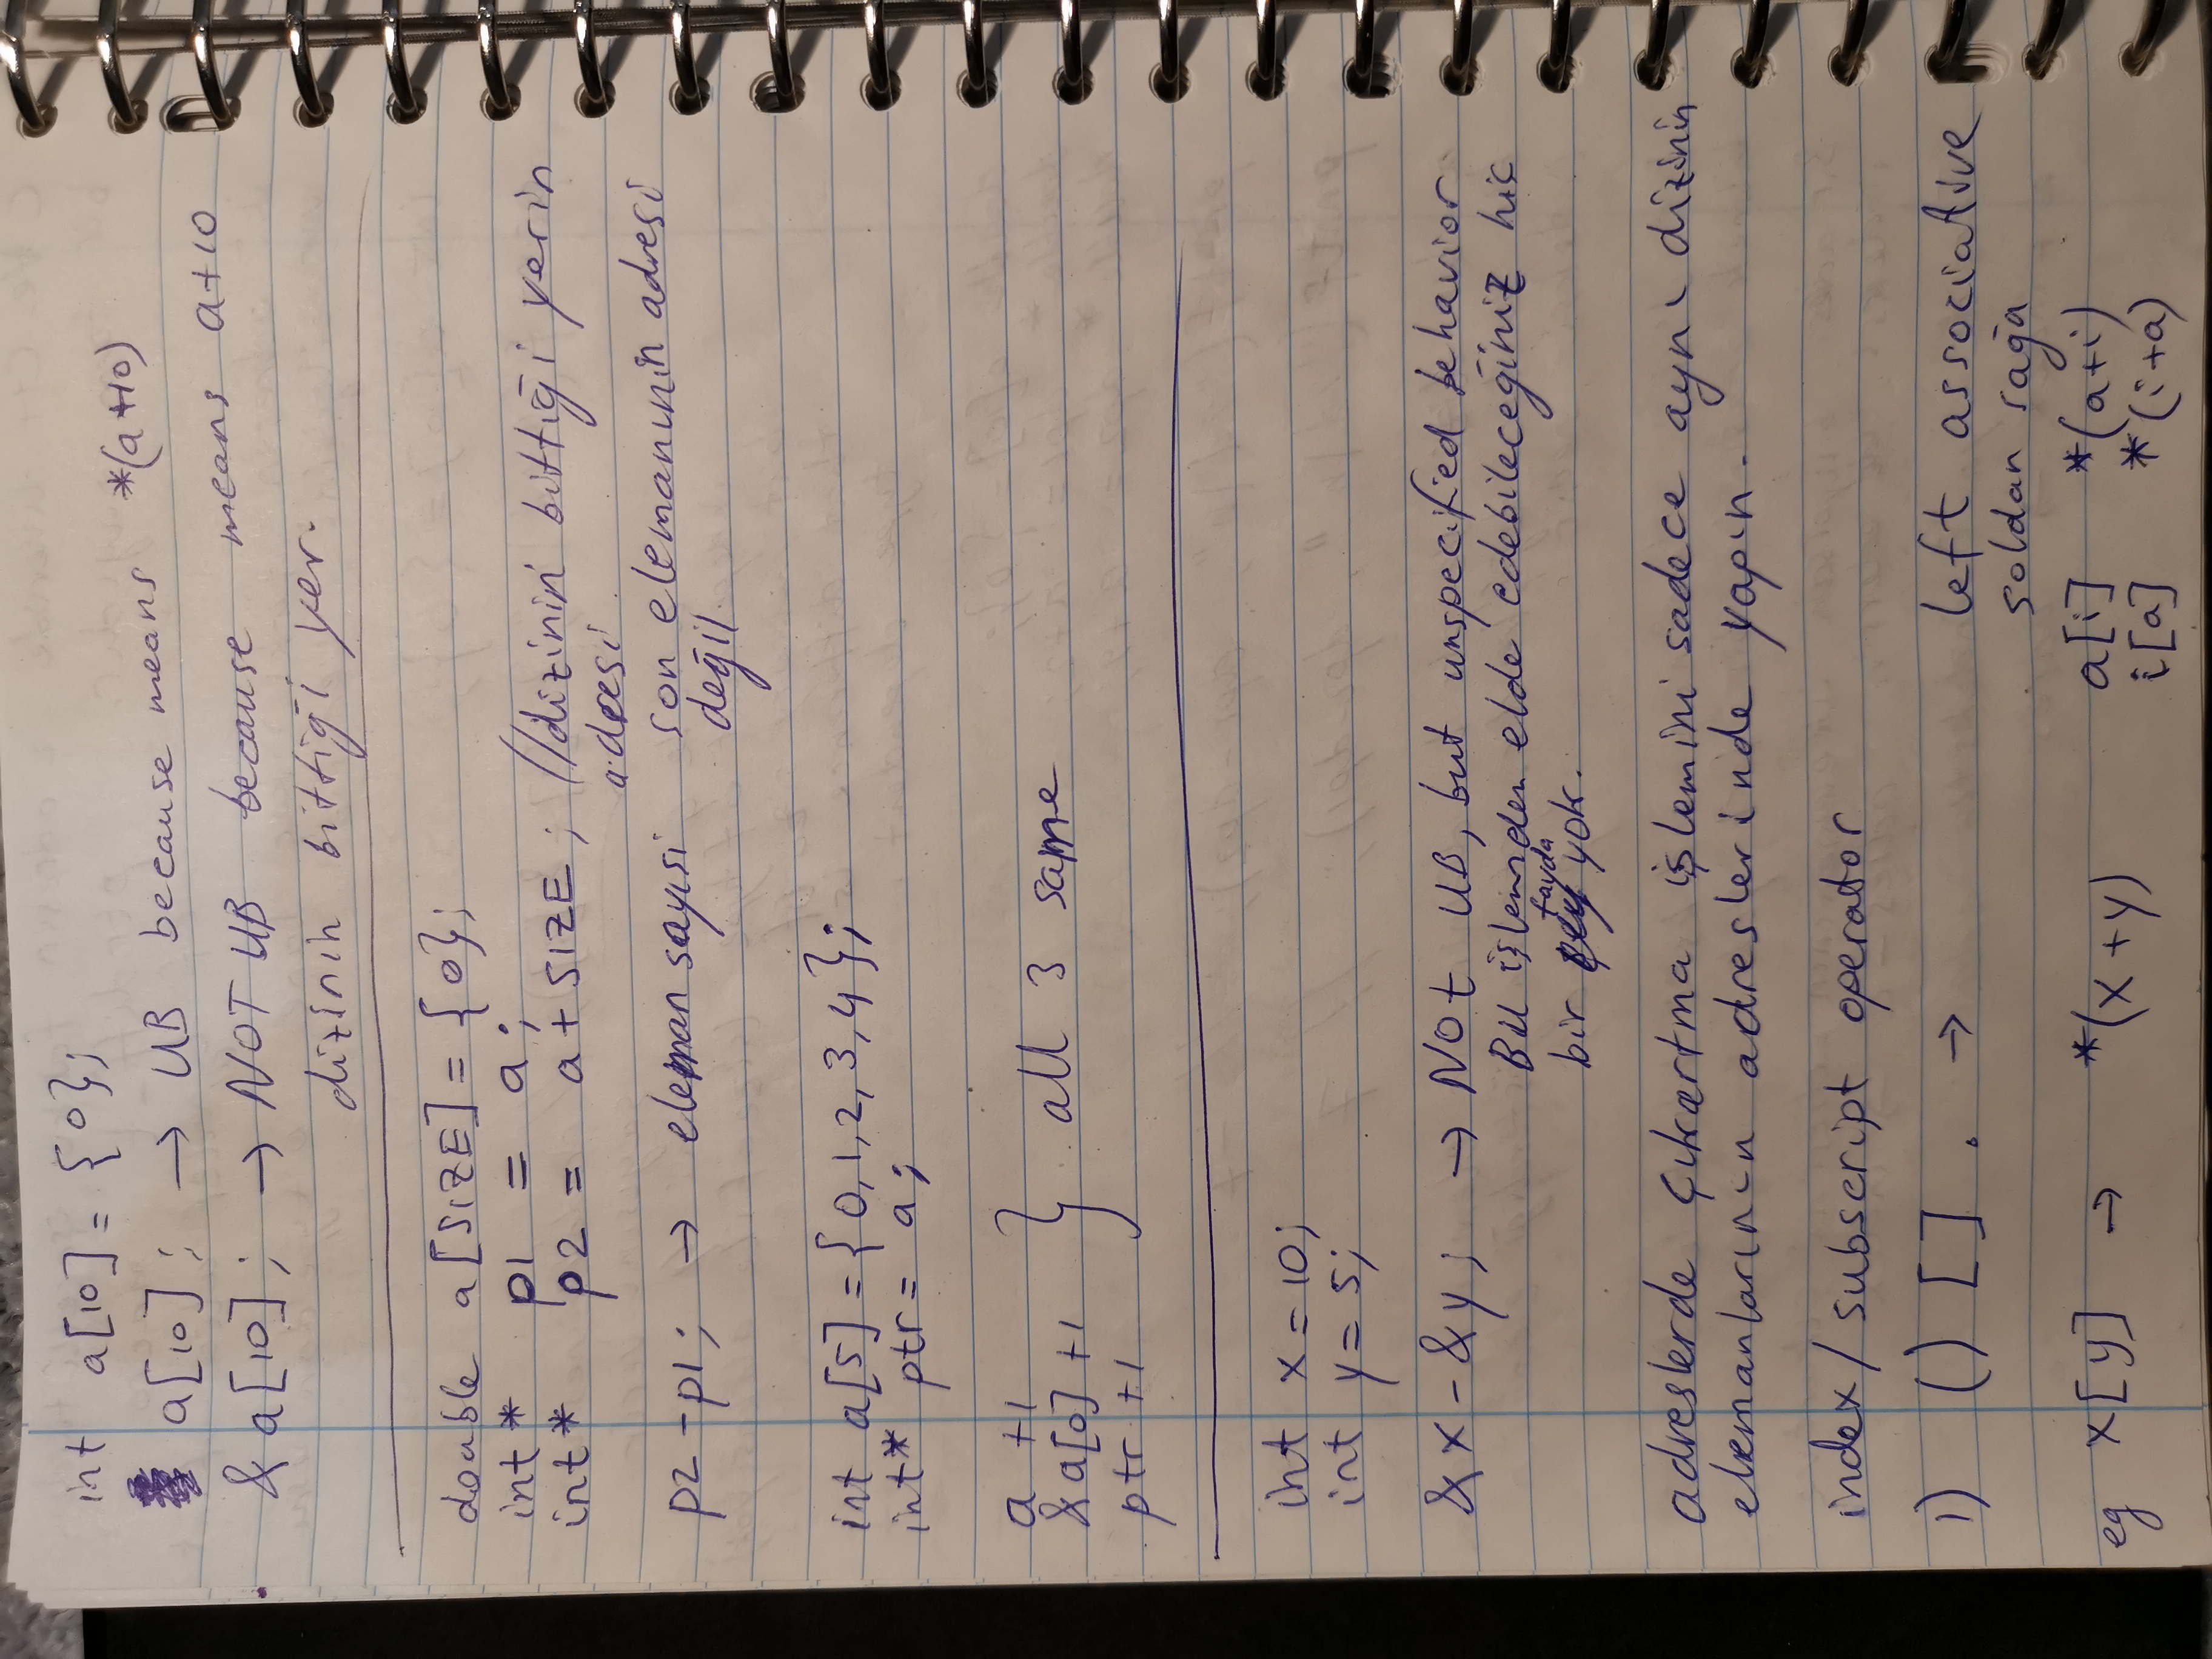 int a[10] = {0};
a[10]; → UB because means *(a+10)
& a[10]; → NOT UB because means a+10
dizinin bittiği yer.
double a[SIZE] = {0};
int* p1 = a;
int* p2 = a + SIZE; //dizinin bittiği yerin
adresi
p2 - p1; → eleman sayısı son elemanının adresi
değil.
int a[5] = {0,1,2,3,4};
int* ptr = a;
a +1
&a[0] +1 } all 3 same
ptr +1
int x = 10;
int y = 5;
&x - &y; → NOt UB, but unspecified behavior
Bu işlemden elde edebileceğiniz hiç
fayda
bir yok.
adreslerde çıkartma işlemini sadece aynı dizinin
elemanlarının adreslerinde yapın.
index/subscript operator
1) () [] . → left associative
soldan sağa
eg x[y] → *(x+y) a[i] *(a+i)
i[a] *(i+a)